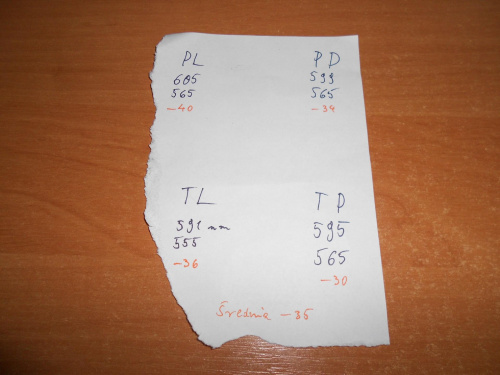 PL
605
565
-40
PD
599
565
-34
TL
591 mm
555
-36
TP
595
565
-30
Średnia -35